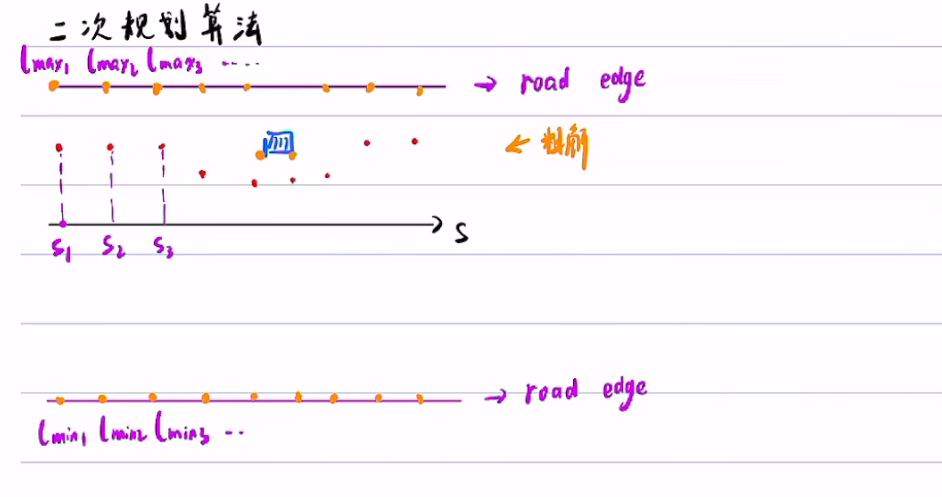 二次规划算法
lmax1 lmax2 lmax3 ....
→ road edge
← 粗解
S
S1 S2 S3
→ road edge
lmin1 lmin2 lmin3 ..